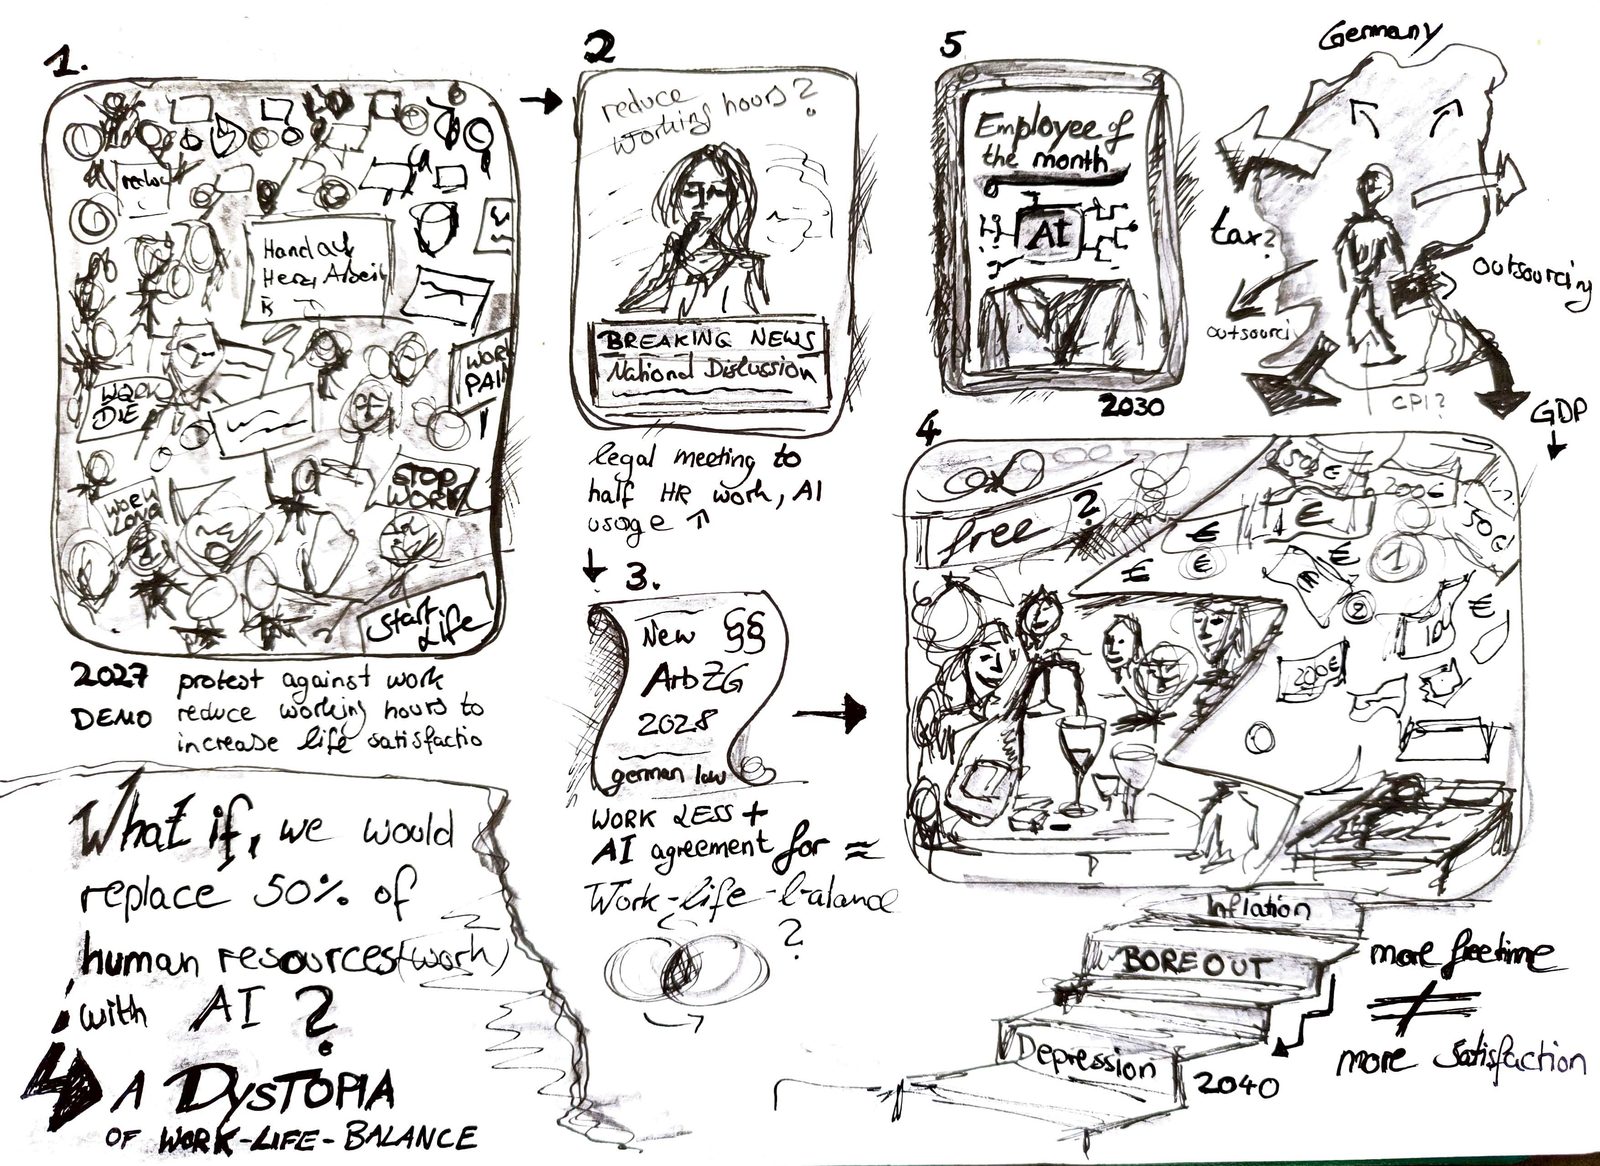 1.
Hand auf
Herz, Arbeit
WORK
DIE
WORK
PAI
STOP
WORK
WORK
LONG
Start
Life
2027
DEMO
protest against work
reduce working hours to
increase life satisfactio
2
reduce
working hours?
BREAKING NEWS
National Discussion
legal meeting to
half HR work, AI
usage ↑
3.
New §§
ArbZG
2028
german law
WORK LESS +
AI agreement for ≈
Work-life-balance
?
4
free ?
50€
200€
50€
€
€
€
€
€
€
1
2
10
200€
Inflation
BOREOUT
Depression
2040
more freetime
≠
more satisfaction
5
Employee of
the month
AI
2030
Germany
tax?
outsourcing
outsourci
CPI?
GDP
↓
What if, we would
replace 50% of
human resources (work)
with AI ?
A DYSTOPIA
OF WORK-LIFE-BALANCE